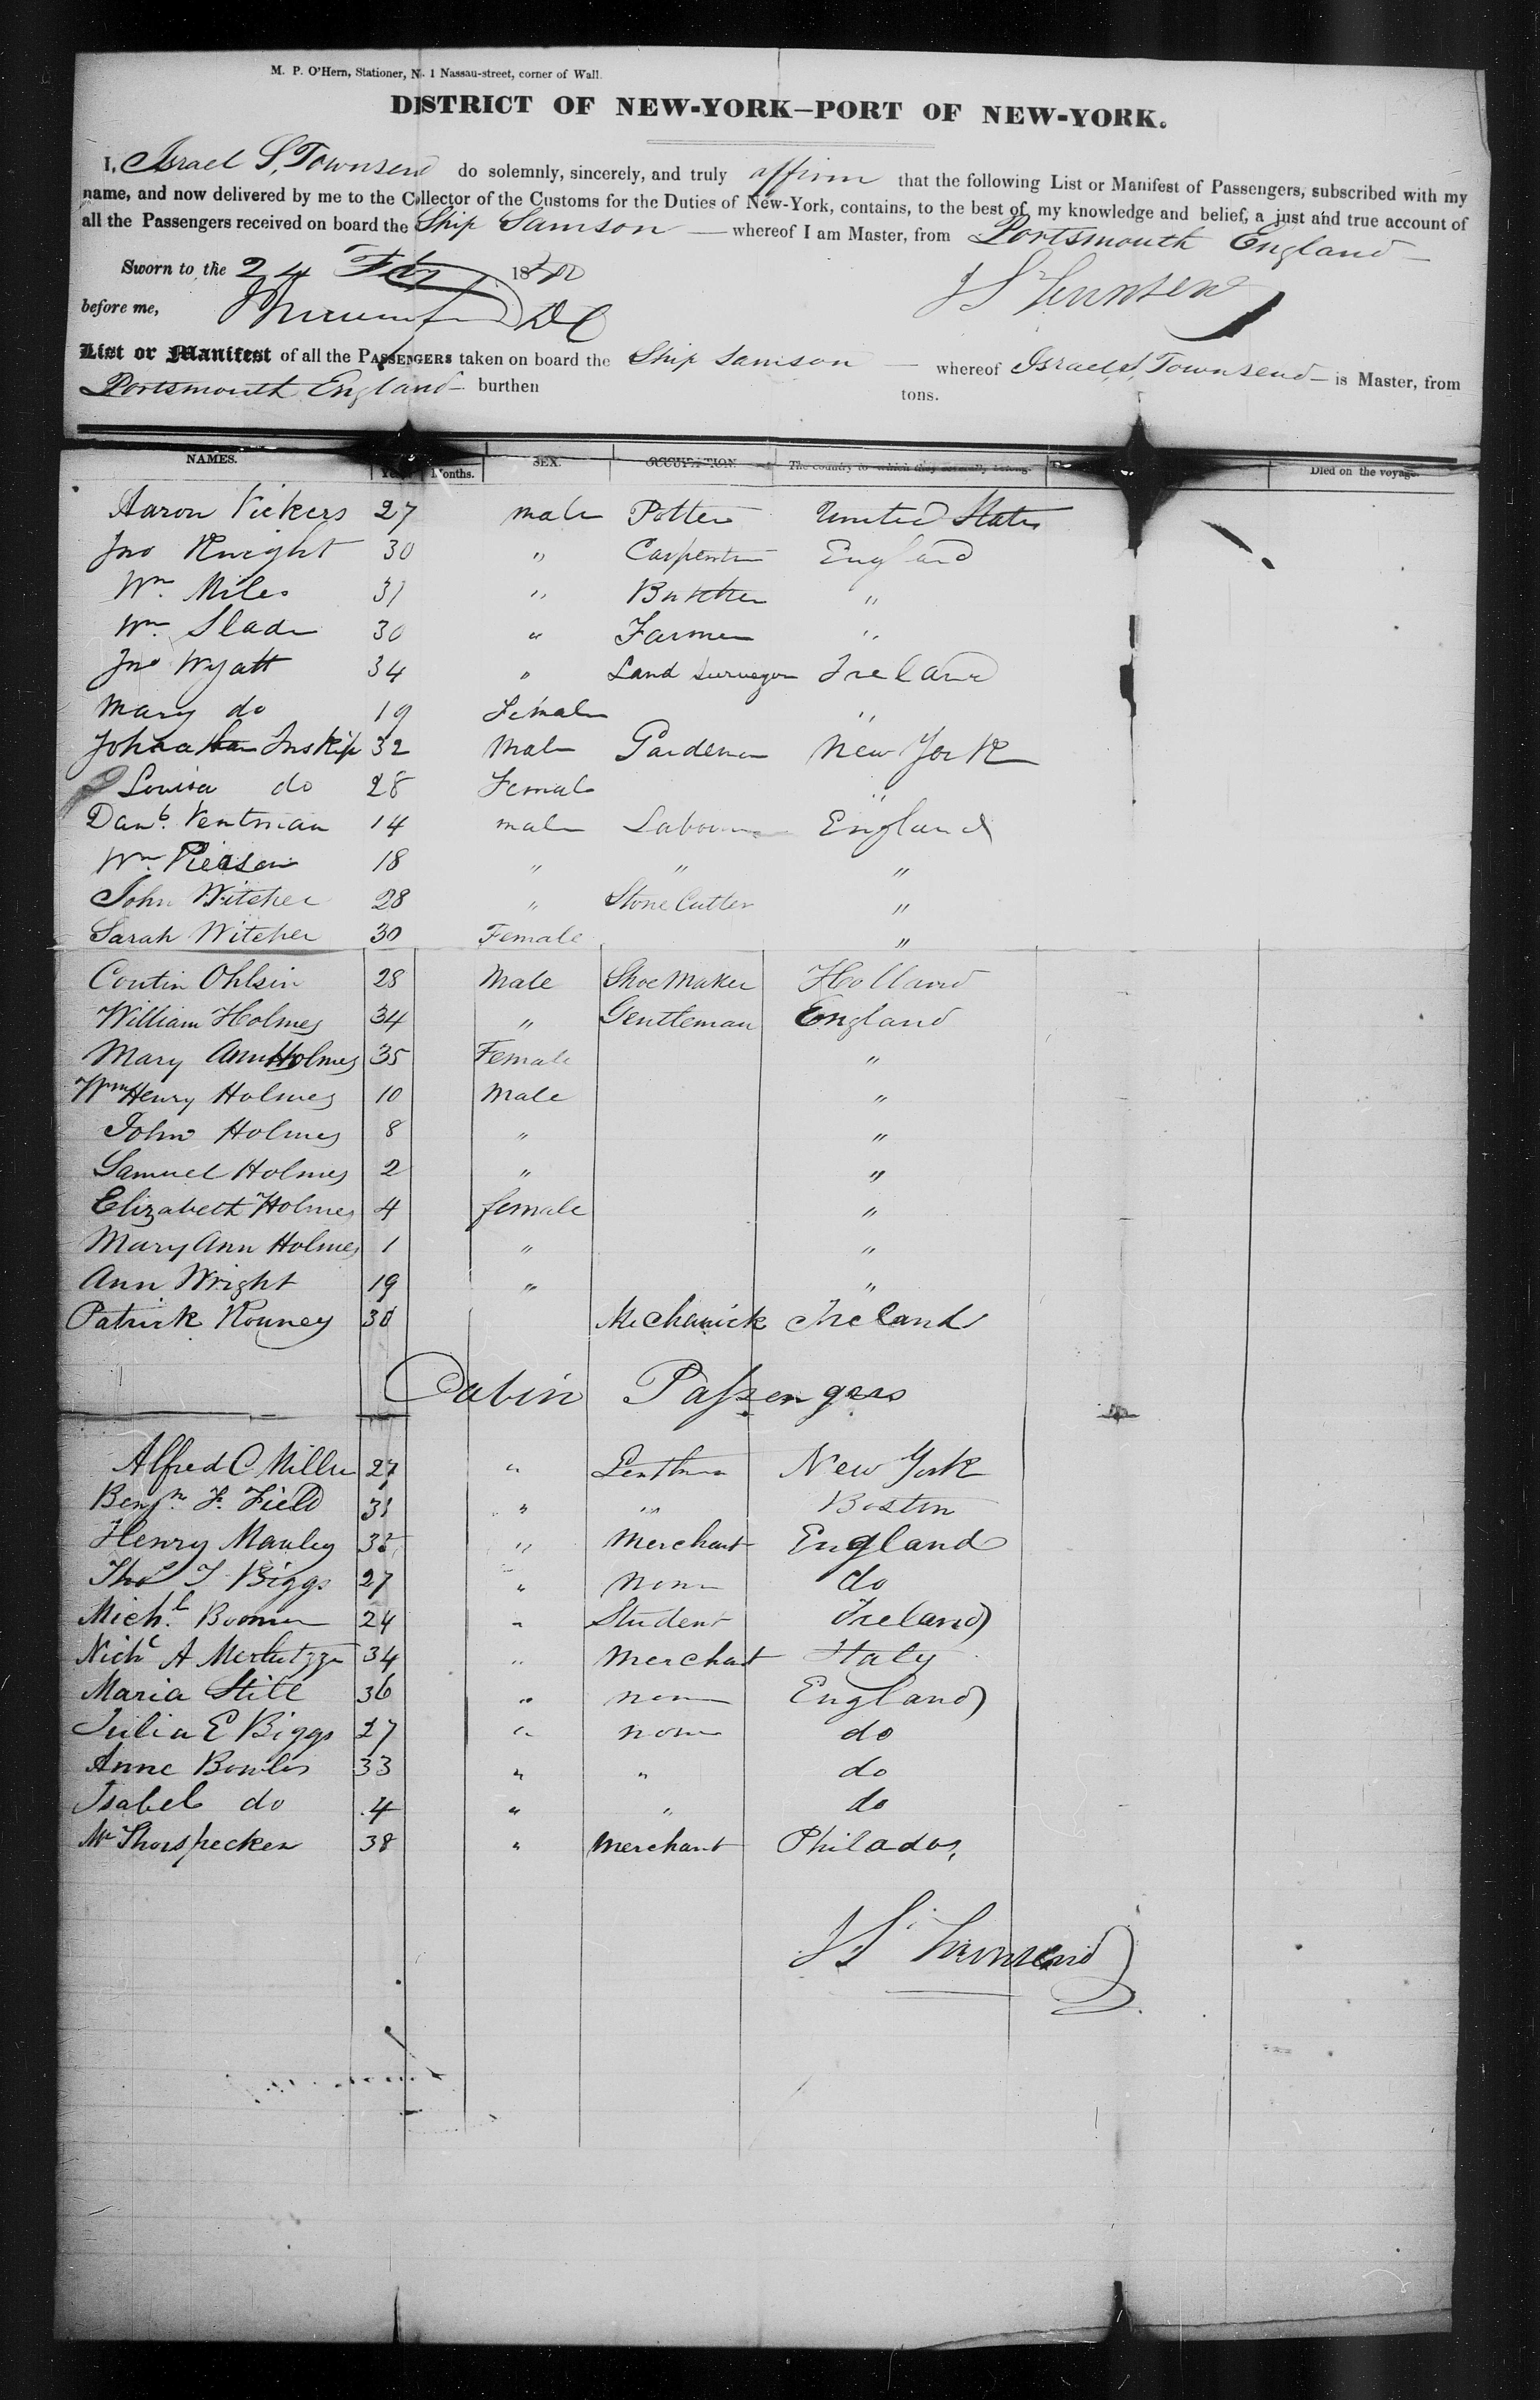 M. P. O'Hern, Stationer, No. 1 Nassau-street, corner of Wall.
DISTRICT OF NEW-YORK—PORT OF NEW-YORK.
I, Israel S. Townsend do solemnly, sincerely, and truly affirm that the following List or Manifest of Passengers, subscribed with my
name, and now delivered by me to the Collector of the Customs for the Duties of New-York, contains, to the best of my knowledge and belief, a just and true account of
all the Passengers received on board the Ship Samson — whereof I am Master, from Portsmouth England —
Sworn to, the 24 Feb 1840
I S Townsend
before me, DC
List or Manifest of all the PASSENGERS taken on board the Ship Samson — whereof Israel S. Townsend — is Master, from
Portsmouth England — burthen tons.
NAMES. Years Months. SEX. OCCUPATION The country to which they severally belong. Died on the voyage.
Aaron Vickers 27 male Potter United States
Jno Knight 30 " Carpenter England
Wm. Miles 31 " Butcher "
Wm. Slade 30 " Farmer "
Jno Wyatt 34 " Land Surveyor Ireland
Mary do 19 Female "
Johnathan Inskip 32 Male Gardener New York
Louisa do 28 Female "
Danl. Ventman 14 male Labourer England
Wm. Pierson 18 " " "
John Witcher 28 " Stone Cutter "
Sarah Witcher 30 Female "
Contin Ohlsin 28 Male Shoe Maker Holland
William Holmes 34 " Gentleman England
Mary Ann Holmes 35 Female "
Wm Henry Holmes 10 Male "
John Holmes 8 " "
Samuel Holmes 2 " "
Elizabeth Holmes 4 female "
Mary Ann Holmes 1 " "
Ann Wright 19 " "
Patrick Rooney 30 Mechanick Ireland
Cabin Passengers
Alfred C Miller 27 " Gentleman New York
Benjn. F. Field 31 " " Boston
Henry Manley 35 " Merchant England
Thos T Biggs 27 " None do
Michl. 24 " Student Ireland
Nichs A 34 " Merchant Italy
Maria Still 36 " none England
Julia E Biggs 27 " none do
Anne Bowles 33 " " do
Isabel do 4 " " do
Mr Thorspecken 38 " Merchant Philada,
I S Townsend